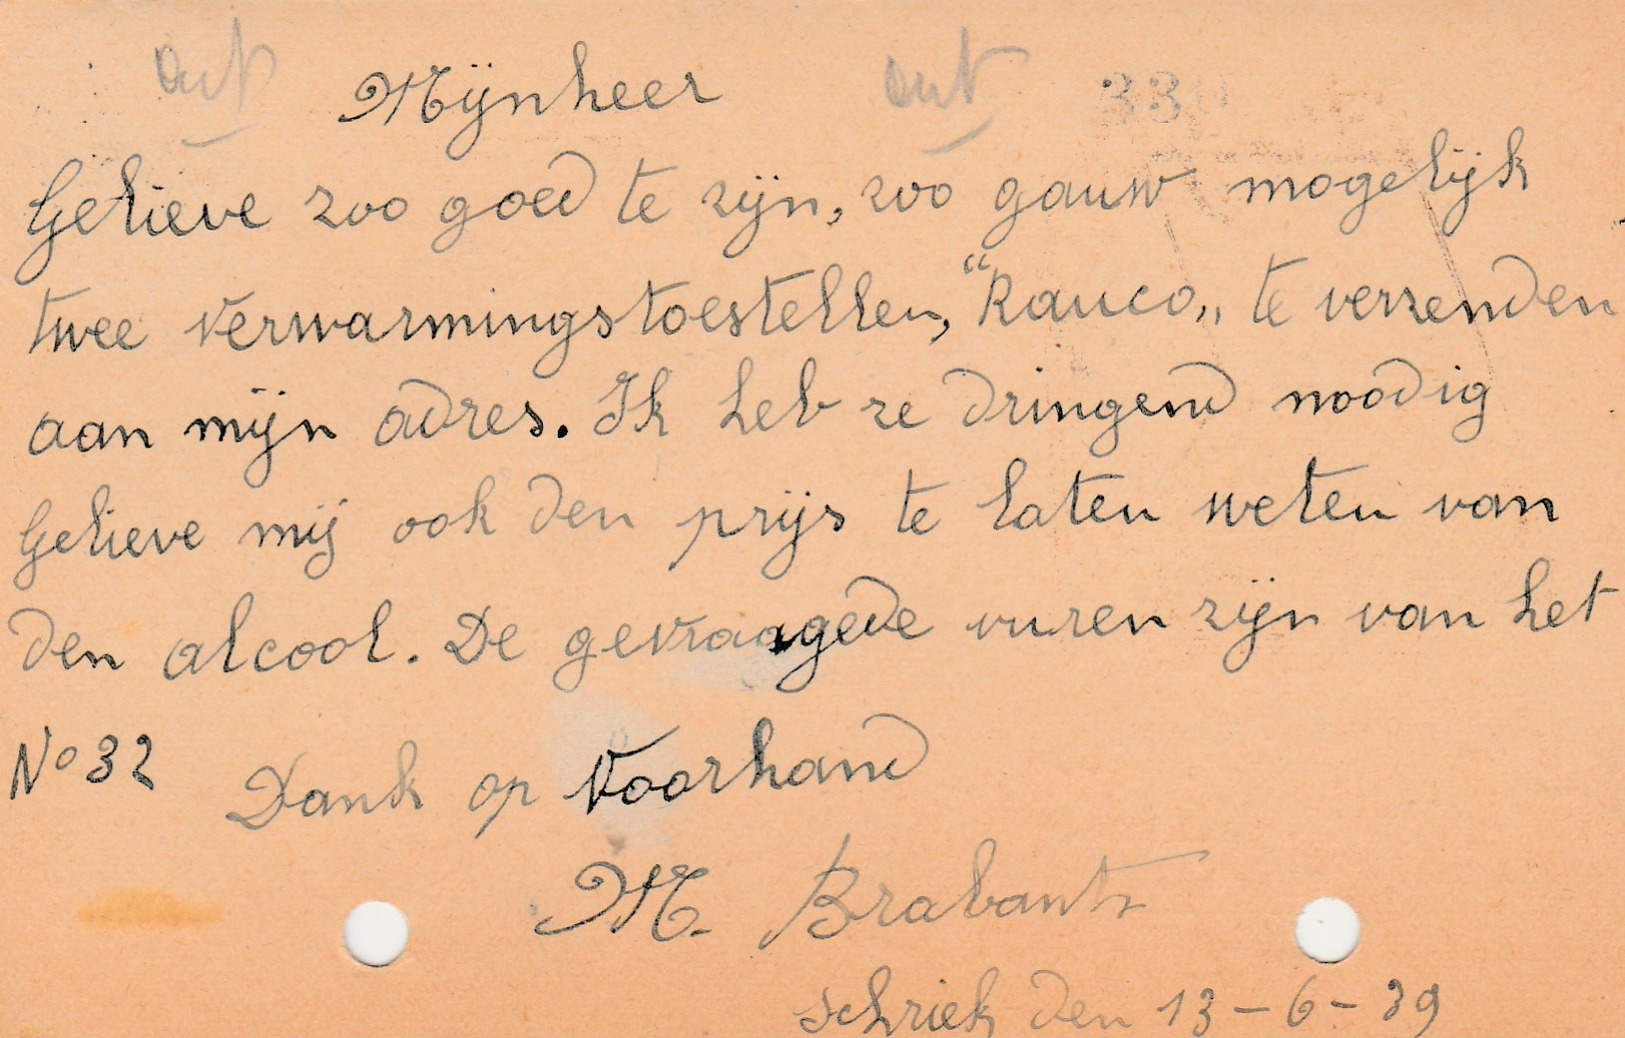 Mijnheer
33
Gelieve zoo goed te zijn, zoo gauw mogelijk
twee verwarmingstoestellen, "Rauco„ te verzenden
aan mijn adres. Ik heb ze dringend noodig
Gelieve mij ook den prijs te laten weten van
den alcool. De gevraagde vuren zijn van het
No 32 Dank op Voorhand
M. Brabants
Schriek den 13-6-39